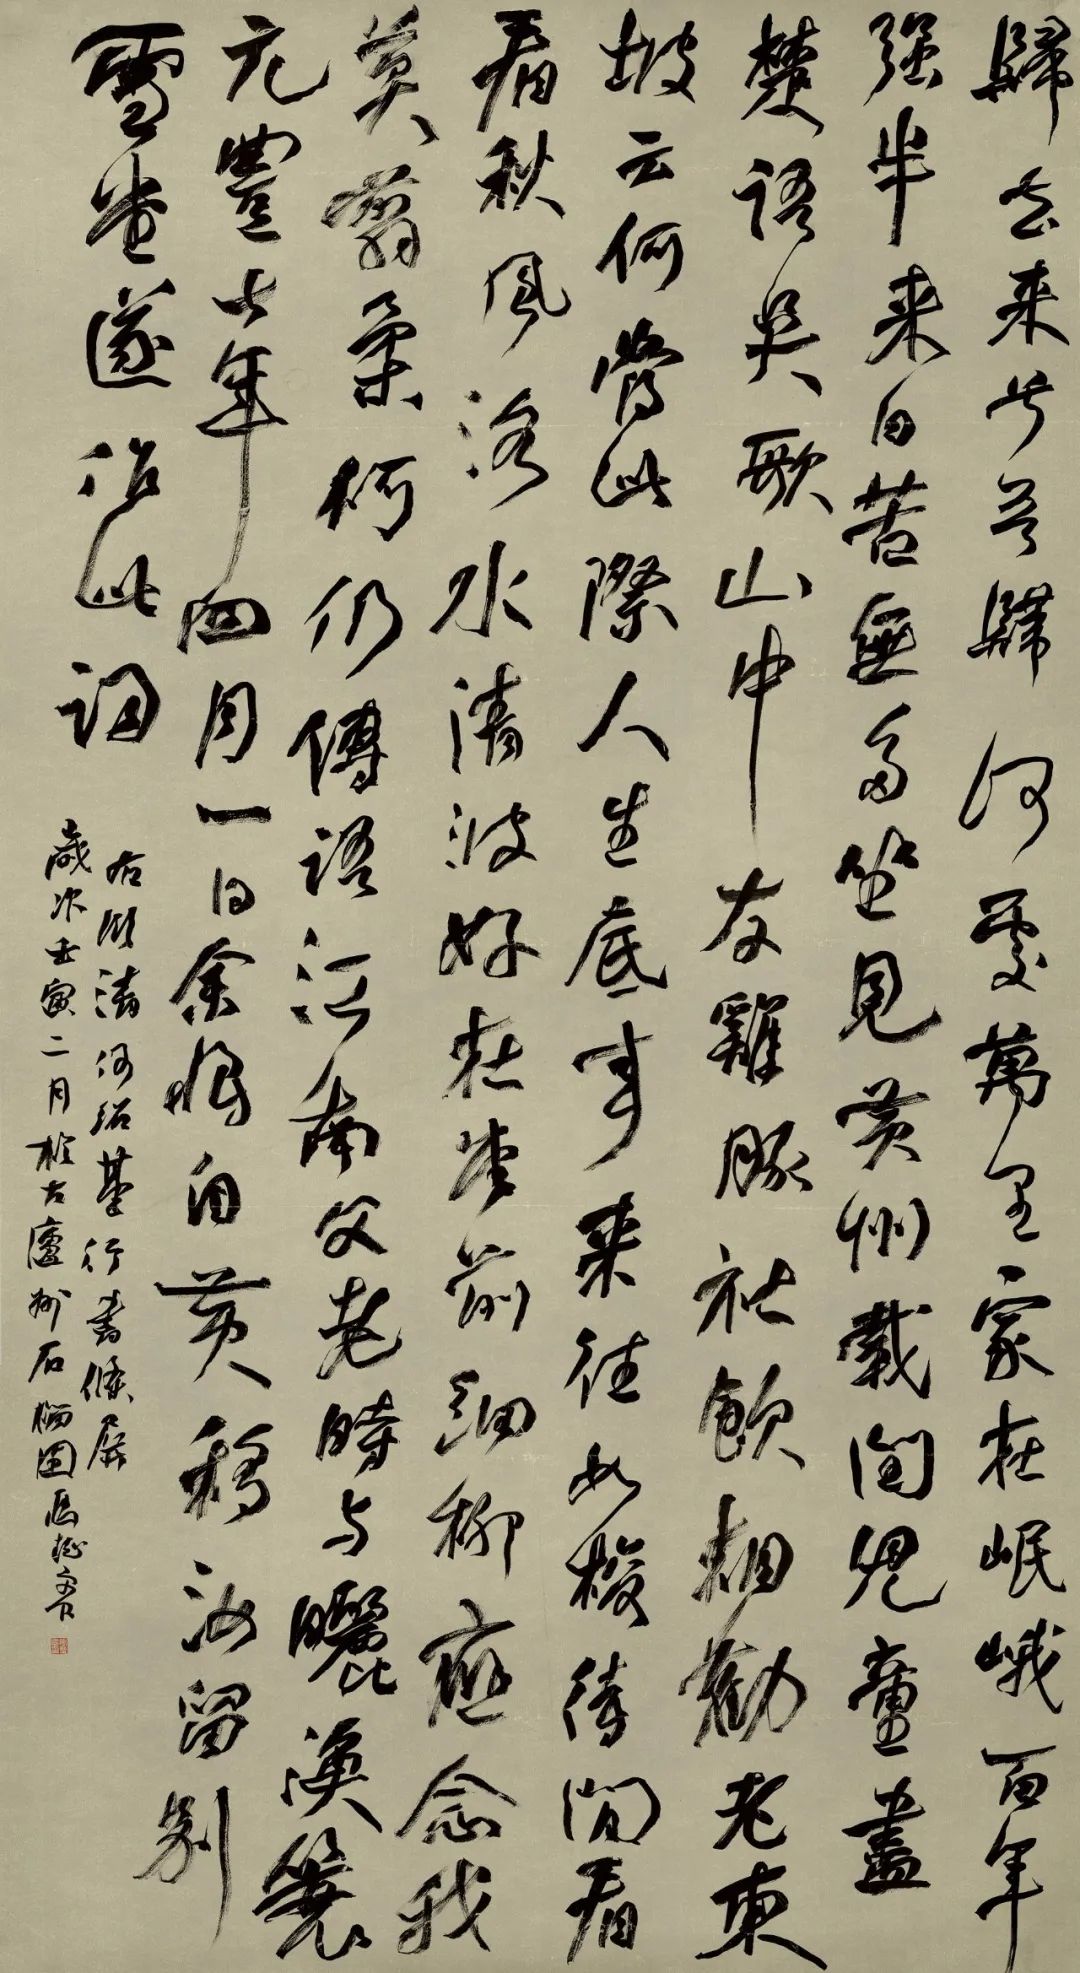 歸去来兮吾歸何處萬里家在岷峨百年
强半来日苦無多坐見黄州載閏兒童盡
楚語吳歌山中友雞豚社飲相勸老東
坡云何當此際人生底事来往如梭待閒看
看秋風洛水清波好在堂前細柳應念我
莫翦柔柯仍傳語江南父老時与曬漁蓑
元豐七年四月一日余將自黄移汝留别
雪堂遂作此詞
右臨清何紹基行書條屏
歲次壬寅二月於古廬州石榴園